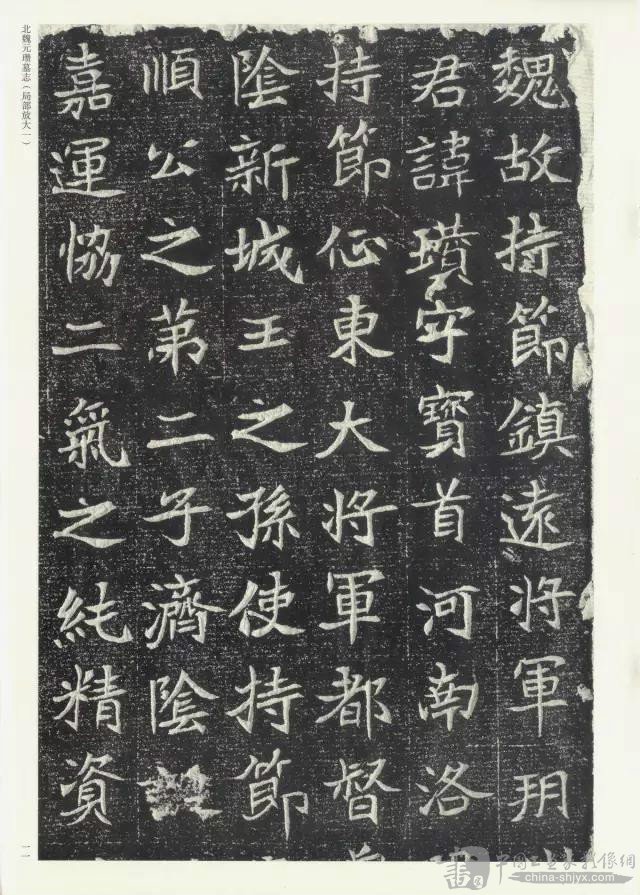 北魏元瓚墓志（局部放大一）
魏故持節鎮遠將軍
君諱瓚字寶首河南洛
持節征東大將軍都督
陰新城王之孫使持節
順公之第二子濟陰
嘉運恊二氣之純精資
一一
china-shjyx.com